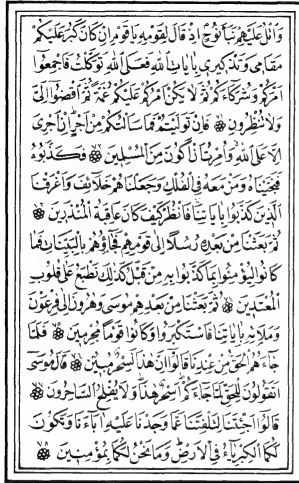 وَاتْلُ عَلَيْهِمْ نَبَأَ نُوحٍ اِذْ قَالَ لِقَوْمِهِ يَا قَوْمِ اِنْ كَانَ كَبُرَ عَلَيْكُمْ
مَقَامِى وَتَذْكِيرِى بِاٰيَاتِ اللّٰهِ فَعَلَى اللّٰهِ تَوَكَّلْتُ فَاَجْمِعُوا
اَمْرَكُمْ وَشُرَكَاءَكُمْ ثُمَّ لَا يَكُنْ اَمْرُكُمْ عَلَيْكُمْ غُمَّةً ثُمَّ اقْضُوا اِلَىَّ
وَلَا تُنْظِرُونِ ۞ فَاِنْ تَوَلَّيْتُمْ فَمَا سَاَلْتُكُمْ مِنْ اَجْرٍ اِنْ اَجْرِىَ
اِلَّا عَلَى اللّٰهِ وَاُمِرْتُ اَنْ اَكُونَ مِنَ الْمُسْلِمِينَ ۞ فَكَذَّبُوهُ
فَنَجَّيْنَاهُ وَمَنْ مَعَهُ فِى الْفُلْكِ وَجَعَلْنَاهُمْ خَلَائِفَ وَاَغْرَقْنَا
الَّذِينَ كَذَّبُوا بِاٰيَاتِنَا فَانْظُرْ كَيْفَ كَانَ عَاقِبَةُ الْمُنْذَرِينَ ۞
ثُمَّ بَعَثْنَا مِنْ بَعْدِهِ رُسُلًا اِلٰى قَوْمِهِمْ فَجَاؤُهُمْ بِالْبَيِّنَاتِ فَمَا
كَانُوا لِيُؤْمِنُوا بِمَا كَذَّبُوا بِهِ مِنْ قَبْلُ كَذٰلِكَ نَطْبَعُ عَلٰى قُلُوبِ
الْمُعْتَدِينَ ۞ ثُمَّ بَعَثْنَا مِنْ بَعْدِهِمْ مُوسٰى وَهٰرُونَ اِلٰى فِرْعَوْنَ
وَمَلَائِهِ بِاٰيَاتِنَا فَاسْتَكْبَرُوا وَكَانُوا قَوْمًا مُجْرِمِينَ ۞ فَلَمَّا
جَاءَهُمُ الْحَقُّ مِنْ عِنْدِنَا قَالُوا اِنَّ هٰذَا لَسِحْرٌ مُبِينٌ ۞ قَالَ مُوسٰى
اَتَقُولُونَ لِلْحَقِّ لَمَّا جَاءَكُمْ اَسِحْرٌ هٰذَا وَلَا يُفْلِحُ السَّاحِرُونَ ۞
قَالُوا اَجِئْتَنَا لِتَلْفِتَنَا عَمَّا وَجَدْنَا عَلَيْهِ اٰبَاءَنَا وَتَكُونَ
لَكُمَا الْكِبْرِيَاءُ فِى الْاَرْضِ وَمَا نَحْنُ لَكُمَا بِمُؤْمِنِينَ ۞